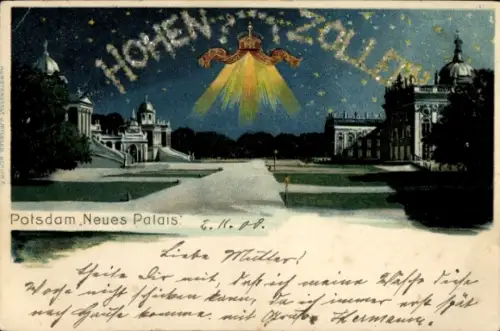 HOHENZOLLERN
Potsdam „Neues Palais".
2.11.08.
Liebe Mutter!
Theile Dir mit, daß ich meine Wäsche diese
Woche nicht schicken kann, da ich immer erst spät
nach Hause komme. mit Grüße Hermann.